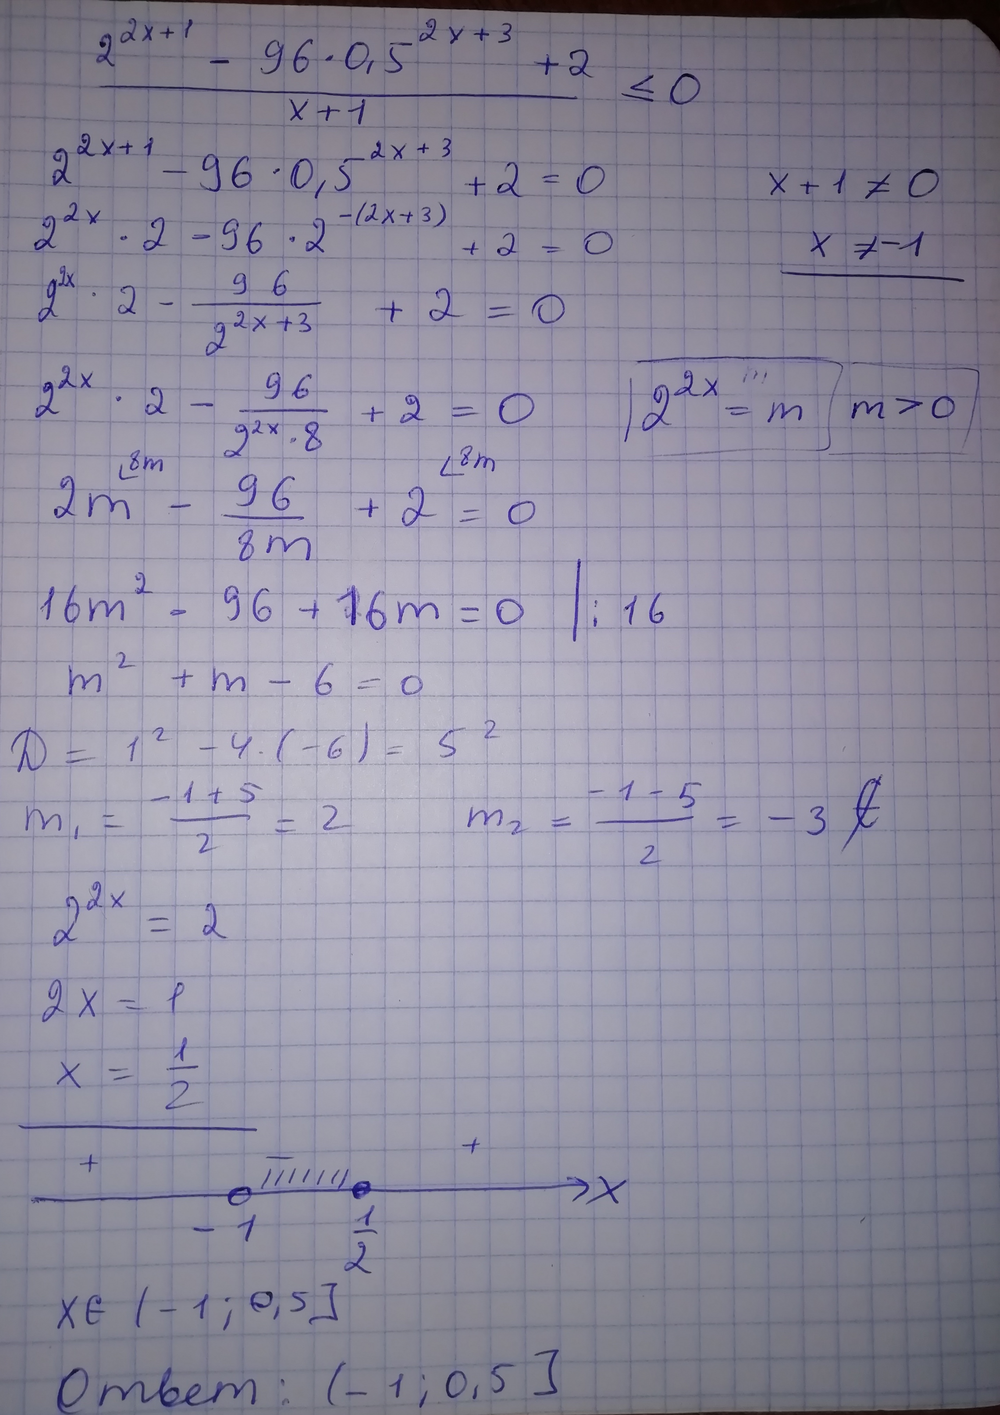 (2^(2x+1) − 96·0,5^(2x+3) + 2) / (x+1) ≤ 0
2^(2x+1) − 96·0,5^(2x+3) + 2 = 0
x+1 ≠ 0
2^(2x)·2 − 96·2^(−(2x+3)) + 2 = 0
x ≠ −1
2^(2x)·2 − 96/2^(2x+3) + 2 = 0
2^(2x)·2 − 96/(2^(2x)·8) + 2 = 0
2^(2x) = m
m > 0
2m ∟8m − 96/(8m) + 2 ∟8m = 0
16m² − 96 + 16m = 0 |:16
m² + m − 6 = 0
D = 1² − 4·(−6) = 5²
m₁ = (−1+5)/2 = 2
m₂ = (−1−5)/2 = −3
2^(2x) = 2
2x = 1
x = 1/2
+ − +
x
−1 1/2
x∈(−1;0,5]
Ответ: (−1;0,5]